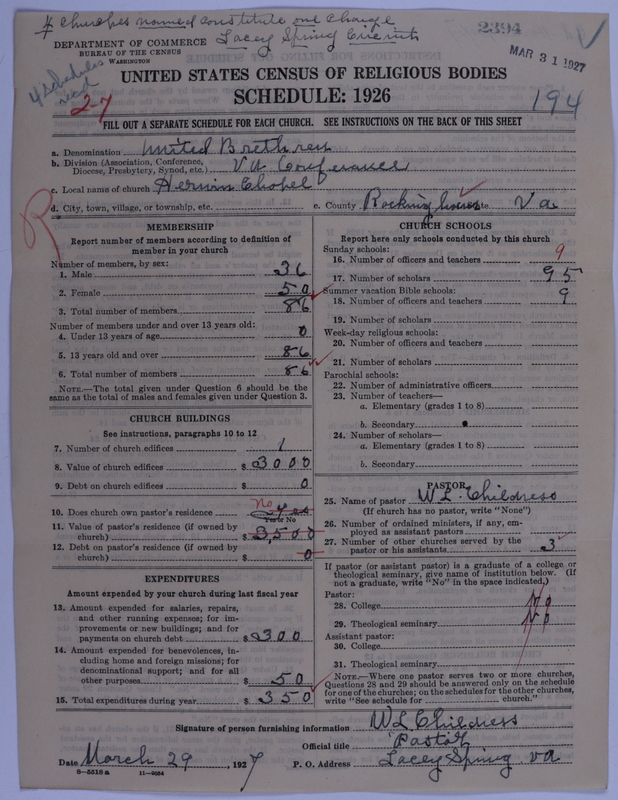 4 Churches named constitute one Charge
Lacey Spring Circuit
2394
MAR 31 1927
DEPARTMENT OF COMMERCE
BUREAU OF THE CENSUS
WASHINGTON
4 Schedules
27
194
UNITED STATES CENSUS OF RELIGIOUS BODIES
SCHEDULE: 1926
FILL OUT A SEPARATE SCHEDULE FOR EACH CHURCH. SEE INSTRUCTIONS ON THE BACK OF THIS SHEET
a. Denomination United Brethren
b. Division (Association, Conference, Diocese, Presbytery, Synod, etc.) Va Conference
c. Local name of church Chapel
d. City, town, village, or township, etc. e. County Rockingham State Va
R
MEMBERSHIP
Report number of members according to definition of
member in your church
Number of members, by sex:
1. Male 36
2. Female 50
3. Total number of members 86
Number of members under and over 13 years old:
4. Under 13 years of age 0
5. 13 years old and over 86
6. Total number of members 86
NOTE.—The total given under Question 6 should be the
same as the total of males and females given under Question 3.
CHURCH BUILDINGS
See instructions, paragraphs 10 to 12
7. Number of church edifices 1
8. Value of church edifices $3000
9. Debt on church edifices $ 0
10. Does church own pastor's residence No yes
Yes or No
11. Value of pastor's residence (if owned by
church) $3,500
12. Debt on pastor's residence (if owned by
church) $ 0
EXPENDITURES
Amount expended by your church during last fiscal year
13. Amount expended for salaries, repairs,
and other running expenses; for im-
provements or new buildings; and for
payments on church debt $300
14. Amount expended for benevolences, in-
cluding home and foreign missions; for
denominational support; and for all
other purposes $ 50
15. Total expenditures during year $ 350
CHURCH SCHOOLS
Report here only schools conducted by this church
Sunday schools:
16. Number of officers and teachers 9
17. Number of scholars 95
Summer vacation Bible schools:
18. Number of officers and teachers 9
19. Number of scholars
Week-day religious schools:
20. Number of officers and teachers
21. Number of scholars
Parochial schools:
22. Number of administrative officers
23. Number of teachers—
a. Elementary (grades 1 to 8)
b. Secondary
24. Number of scholars—
a. Elementary (grades 1 to 8)
b. Secondary
PASTOR
25. Name of pastor W L. Childress
(If church has no pastor, write "None")
26. Number of ordained ministers, if any, em-
ployed as assistant pastors
27. Number of other churches served by the
pastor or his assistants 3
If pastor (or assistant pastor) is a graduate of a college or
theological seminary, give name of institution below. (If
not a graduate, write "No" in the space indicated.)
Pastor:
28. College No
29. Theological seminary No
Assistant pastor:
30. College
31. Theological seminary
NOTE.—Where one pastor serves two or more churches,
Questions 28 and 29 should be answered only on the schedule
for one of the churches; on the schedules for the other churches,
write "See schedule for church."
Signature of person furnishing information W L Childress
Official title Pastor
Date March 29, 1927 P. O. Address Lacey Spring Va
8—5518a 11—9054